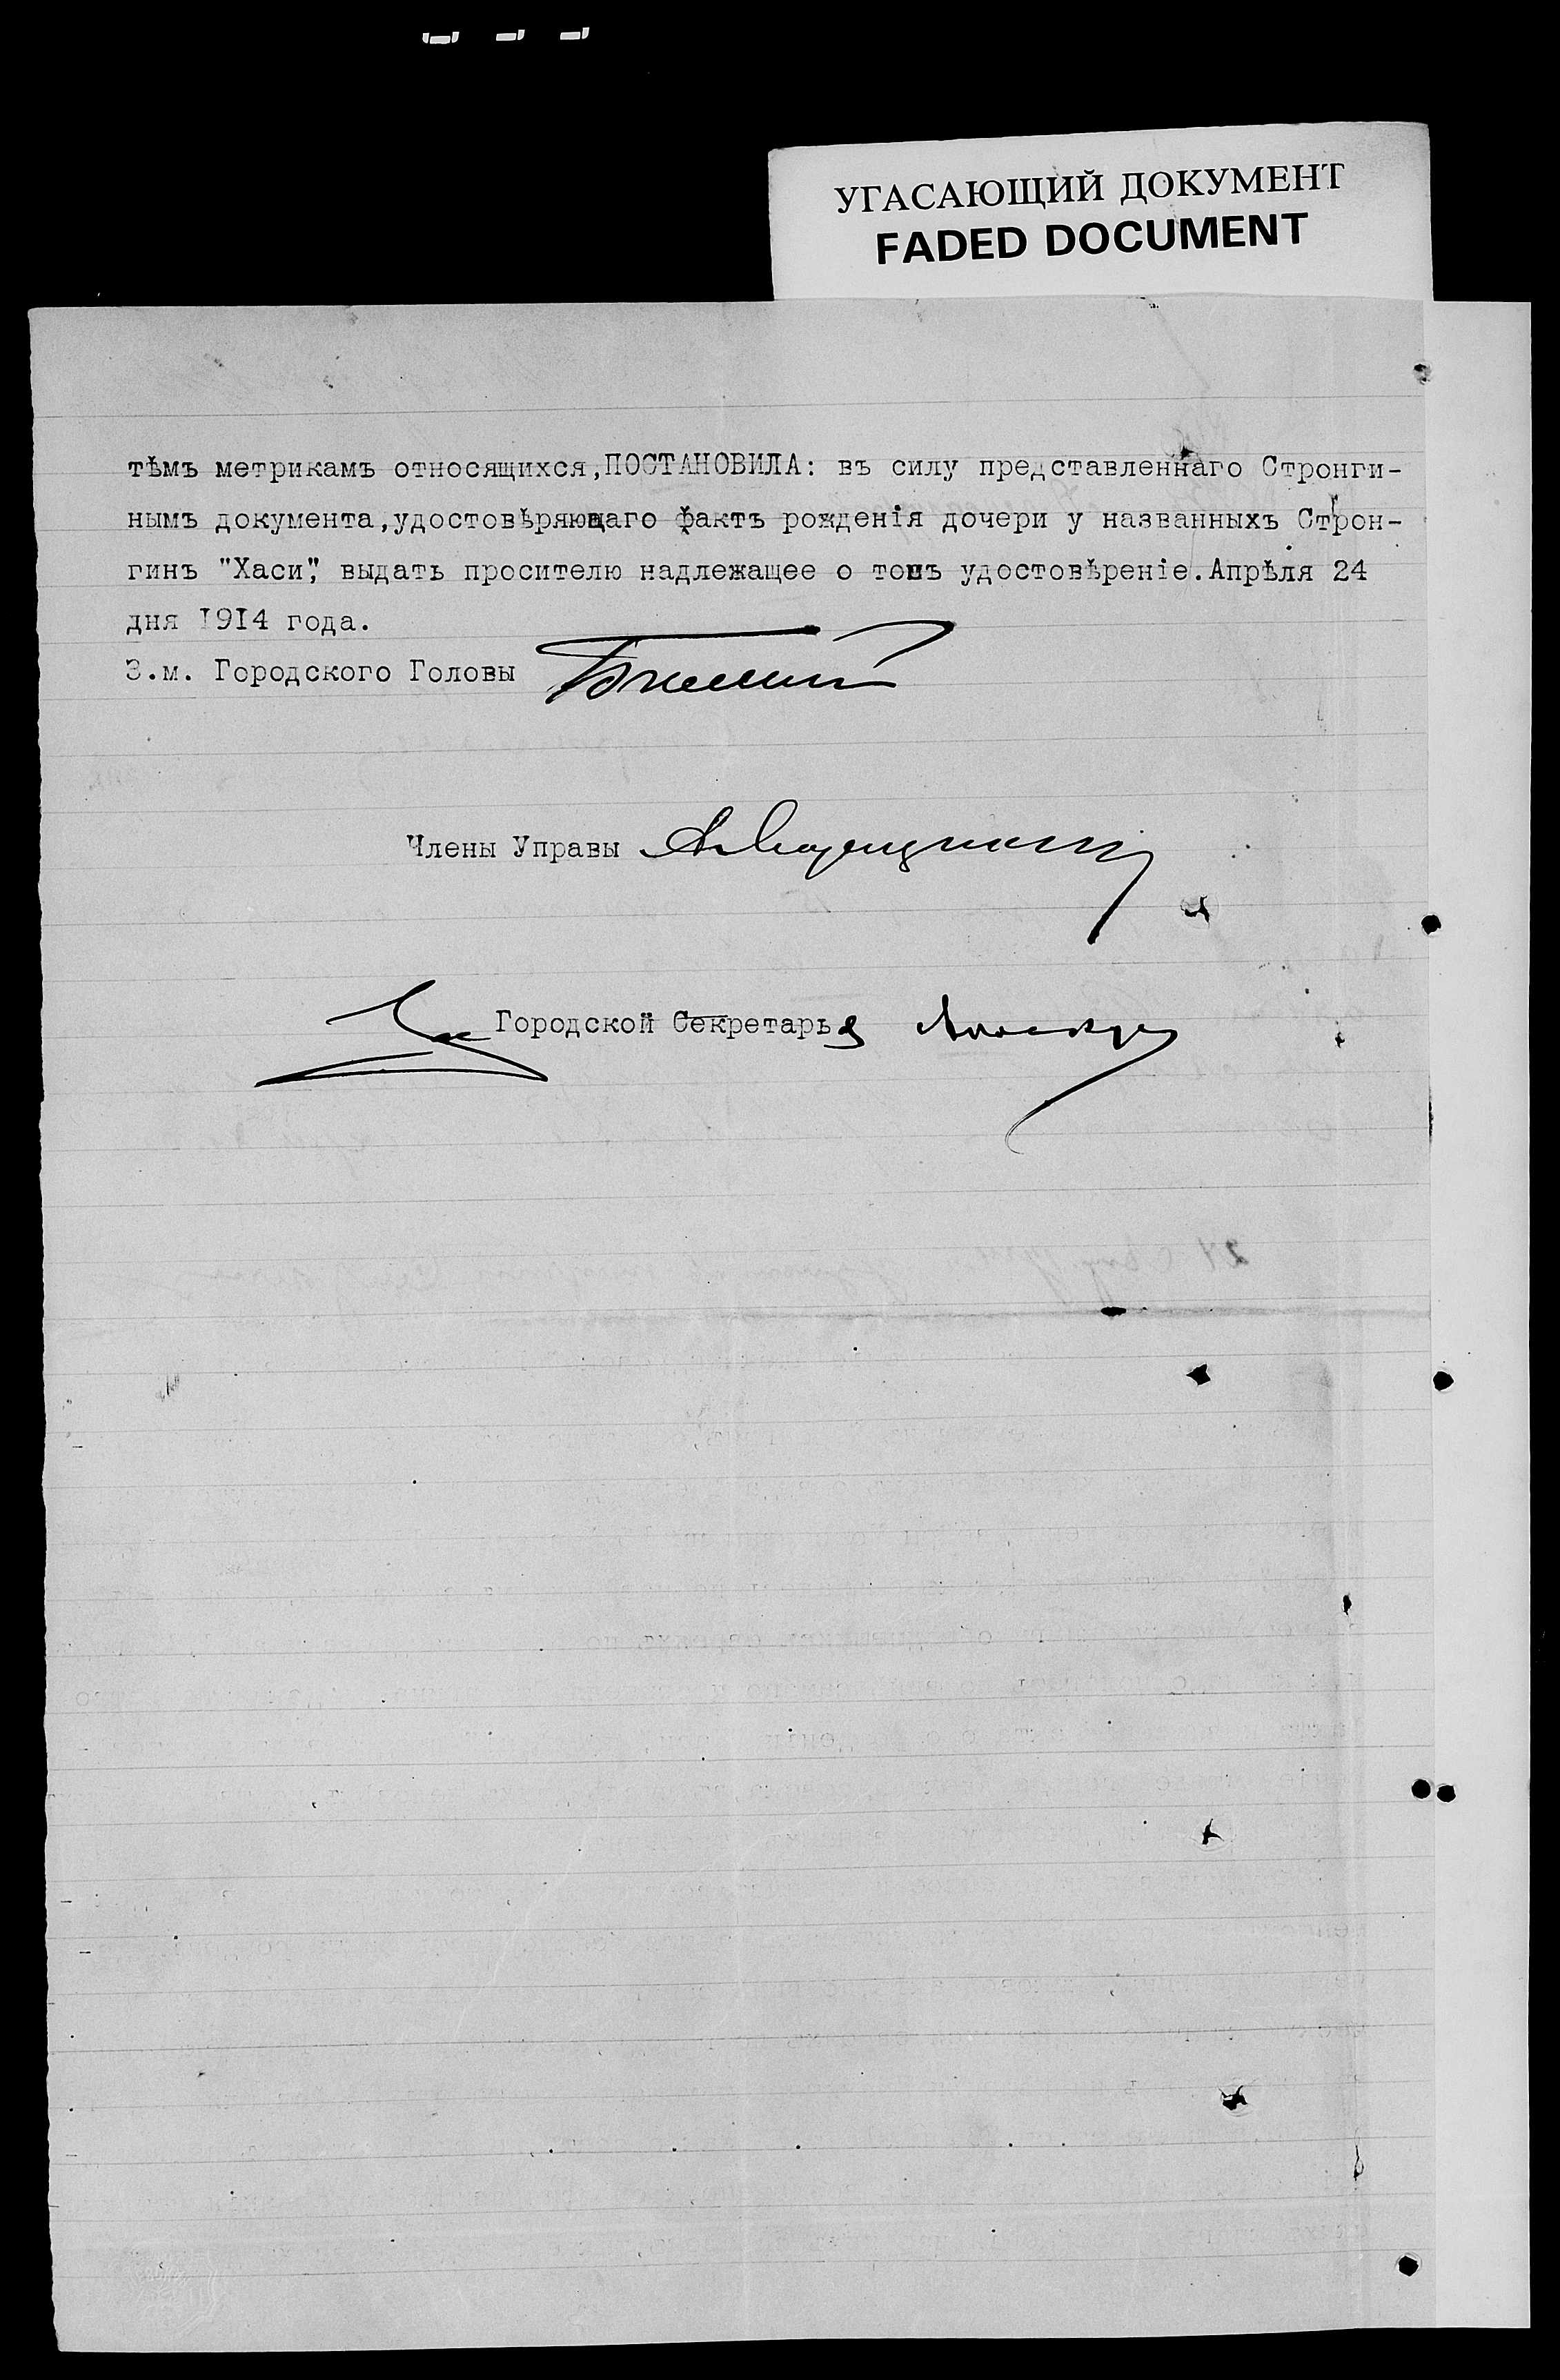 УГАСАЮЩИЙ ДОКУМЕНТ
FADED DOCUMENT
тѣмъ метрикамъ относящихся,ПОСТАНОВИЛА: въ силу представленнаго Стронги-
нымъ документа,удостовѣряющаго фактъ рожденія дочери у названныхъ Строн-
гинъ "Хаси", выдать просителю надлежащее о томъ удостовѣреніе.Апрѣля 24
дня 1914 года.
З.м. Городского Головы
Члены Управы
Городской Секретарь